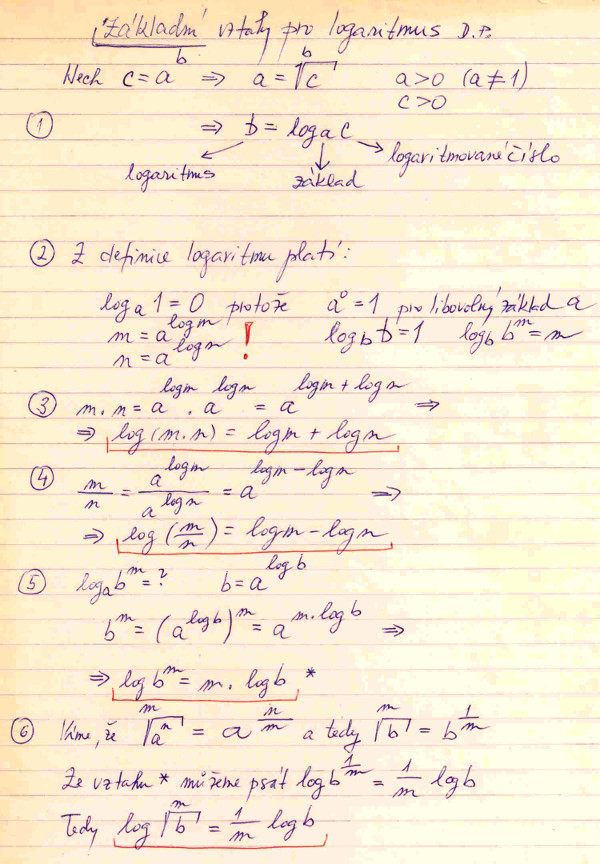 Základní vztahy pro logaritmus D.P.
Nech c = a^b ⇒ a = ᵇ√c a>0 (a≠1)
c>0
① ⇒ b = logₐ c
logaritmus základ logaritmované číslo
② Z definice logaritmu platí:
logₐ 1 = 0 protože a⁰ = 1 pro libovolný základ a
m = a^(log m) ! log_b b = 1 log_b b^m = m
n = a^(log n)
③ m . n = a^(log m) . a^(log n) = a^(log m + log n) ⇒
⇒ log (m . n) = log m + log n
④ m/n = a^(log m) / a^(log n) = a^(log m − log n) ⇒
⇒ log (m/n) = log m − log n
⑤ logₐ b^m = ? b = a^(log b)
b^m = (a^(log b))^m = a^(m . log b) ⇒
⇒ log b^m = m . log b *
⑥ Víme, že ᵐ√(aⁿ) = a^(n/m) a tedy ᵐ√b = b^(1/m)
Ze vztahu * můžeme psát log b^(1/m) = 1/m log b
Tedy log ᵐ√b = 1/m log b